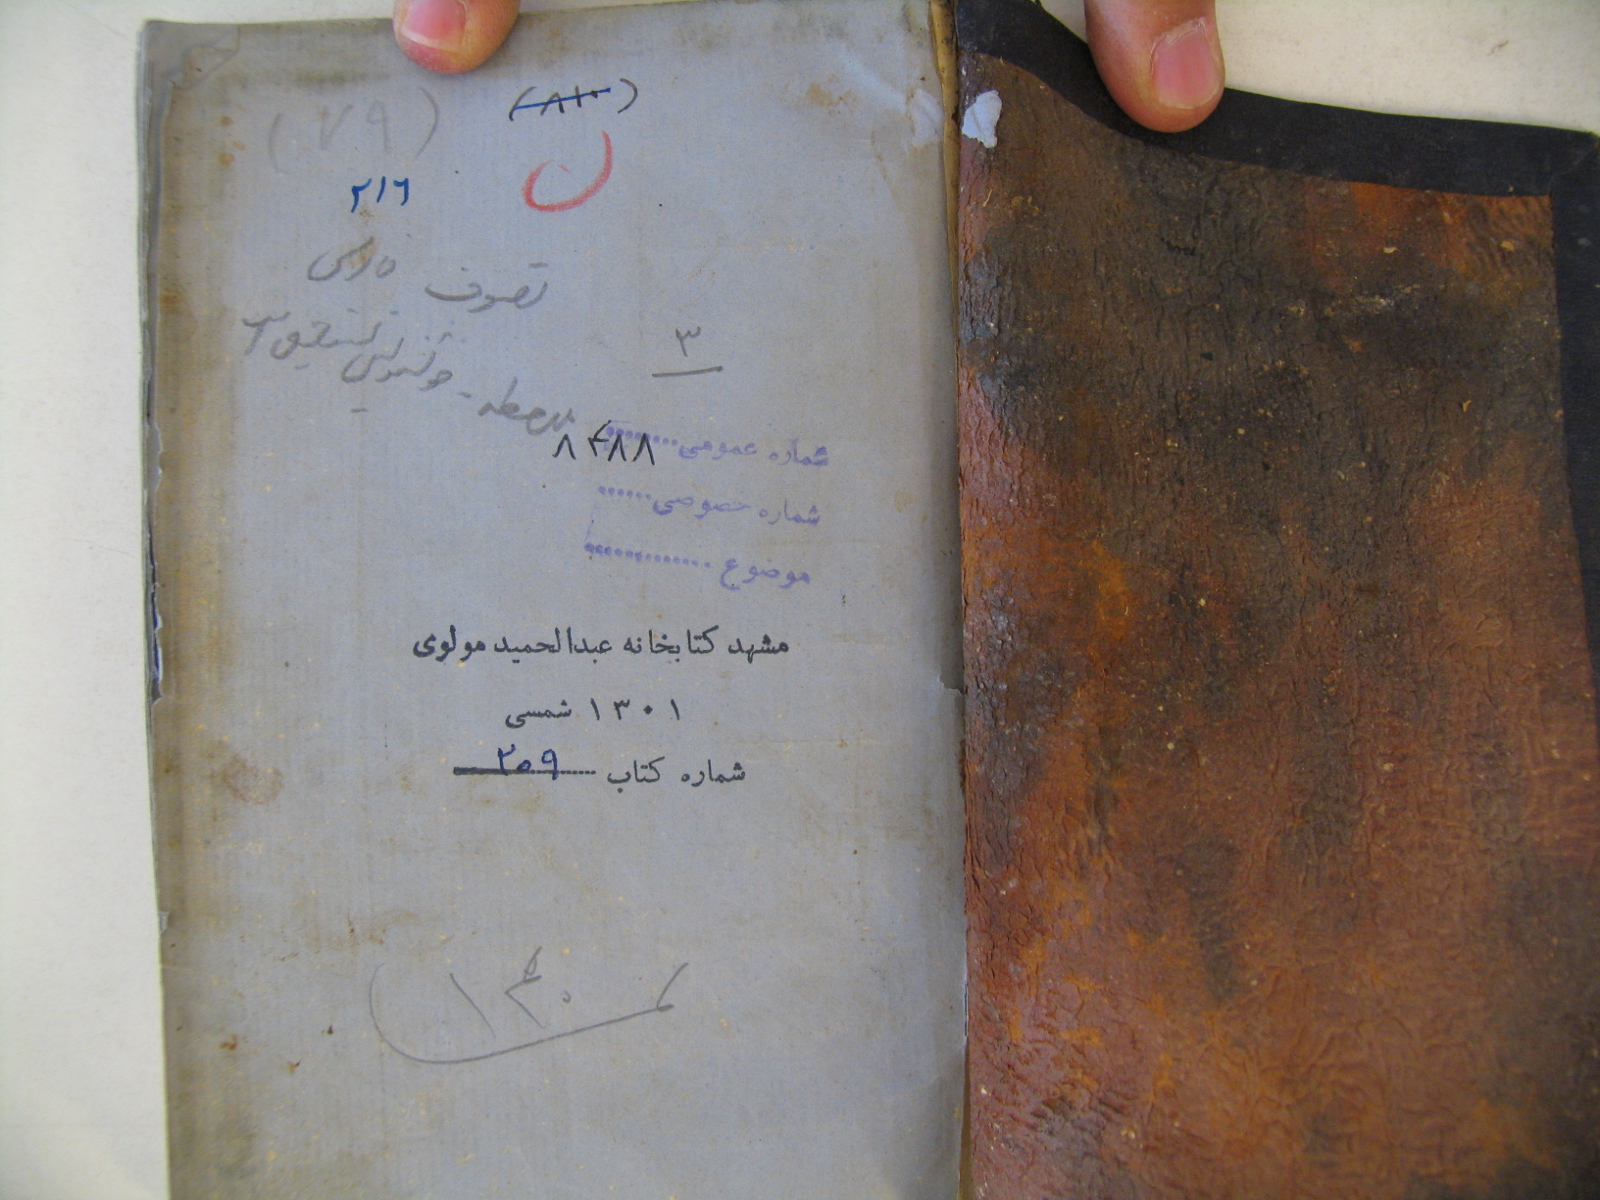 (۸۱۰)
(۷۹)
ن
۲۱۶
تصوف فارسی
۳
ملاحظه - خوشنویس نستعلیق
شماره عمومی ........ ۸۴۸۸
شماره خصوصی ......
موضوع ............
مشهد کتابخانه عبدالحمید مولوی
۱۳۰۱ شمسی
شماره کتاب ۲۰۹